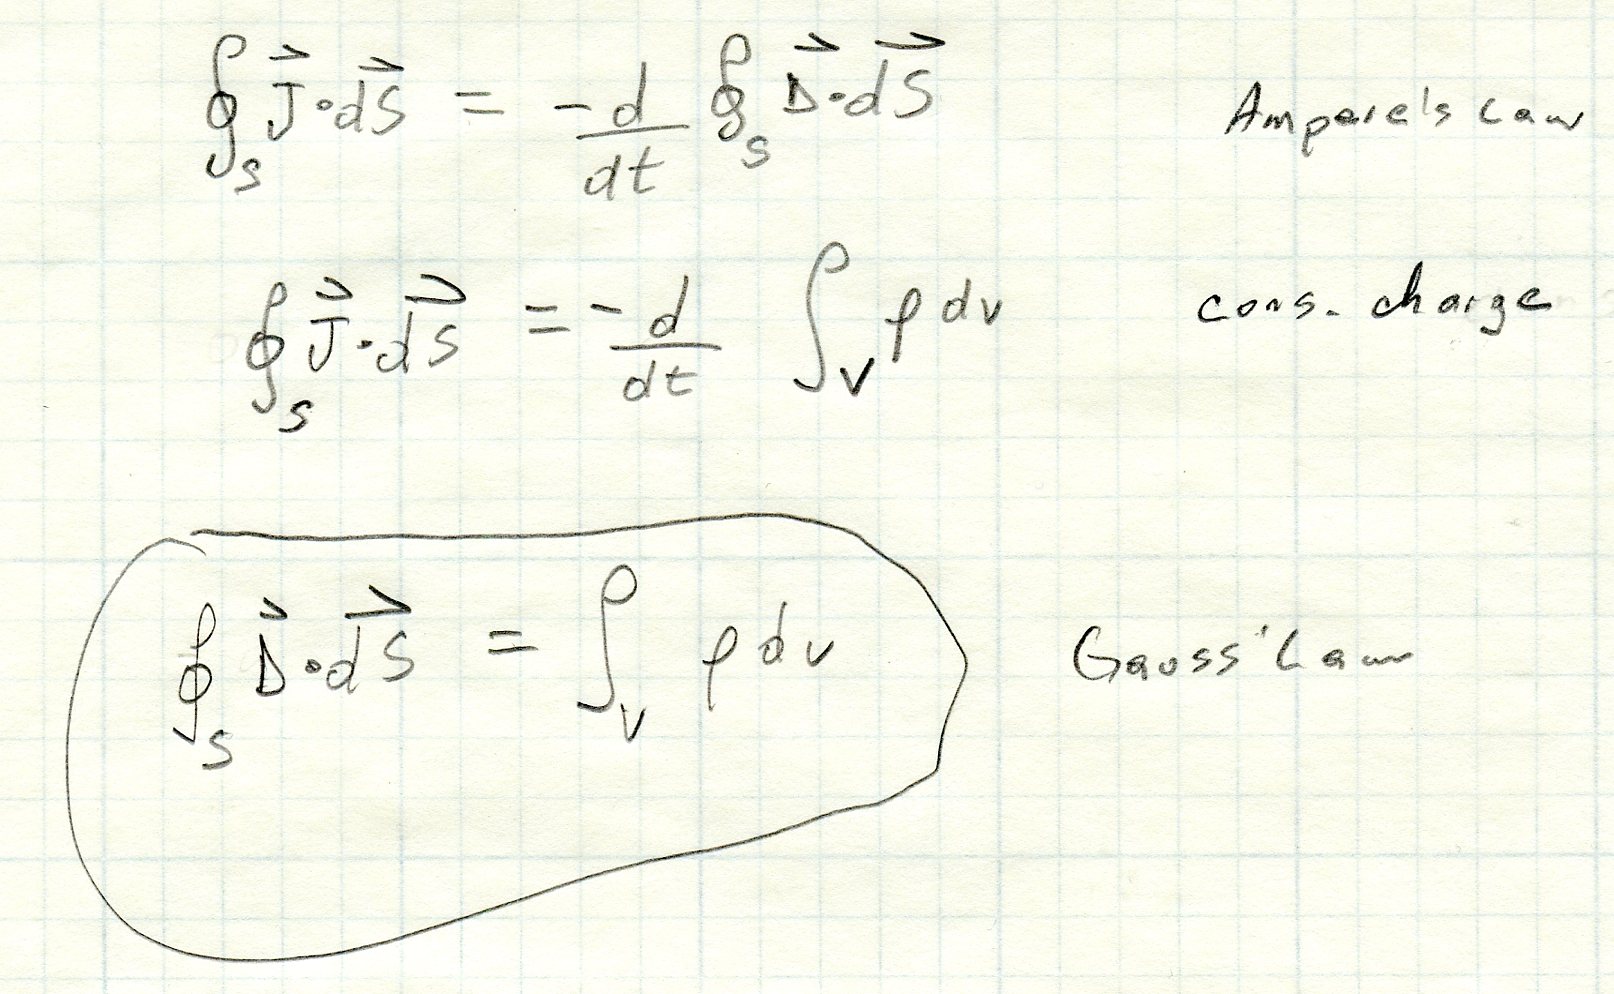 ∮_S J⃗·dS⃗ = -d/dt ∮_S D⃗·dS⃗ Ampere's Law
∮_S J⃗·dS⃗ = -d/dt ∫_V ρ dv cons. charge
∮_S D⃗·dS⃗ = ∫_V ρ dv Gauss' Law